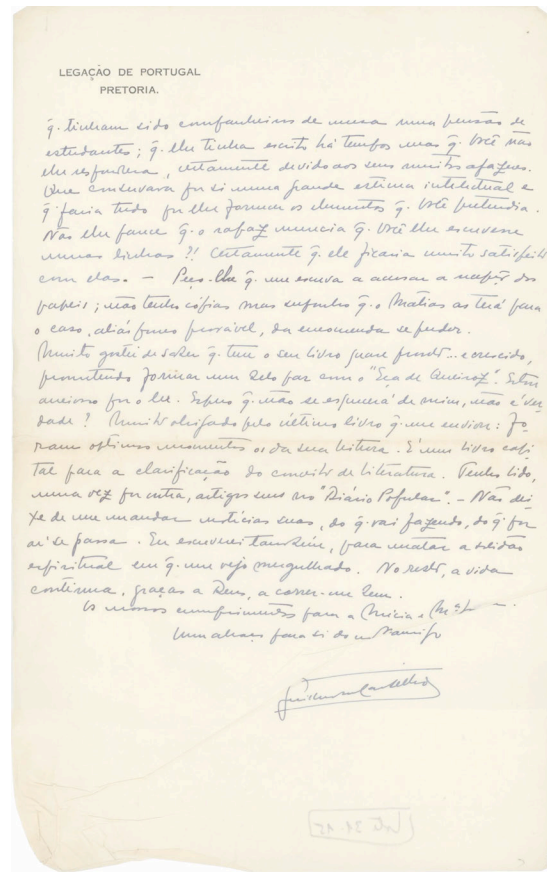 LEGAÇÃO DE PORTUGAL
PRETORIA.
q. tinham sido companheiros de mesa numa pensão de
estudantes; q. lhe tinha escrito há tempos mas q. Você não
lhe respondera, certamente devido aos seus muitos afazeres.
Que conservava por si numa grande estima intelectual e
q. faria tudo por lhe fornecer os elementos q. Você pretendia.
Não lhe parece q. o rapaz merecia q. Você lhe escrevesse
umas linhas?! Certamente q. ele ficaria muito satisfeito
com elas. — Peço-lhe q. me escreva a acusar a recepção dos
papeis; não tenho cópias mas suponho q. o Matias as terá para
o caso, aliás pouco provável, da encomenda se perder.
Muito gostei de saber q. tem o seu livro quase pronto... e crescido,
prometendo formar um belo par com o "Eça de Queiroz". Estou
ancioso por o ler. Espero q. não se esquecerá de mim, não é ver-
dade? Muito obrigado pelo último livro q. me enviou: fo-
ram optimos momentos os da sua leitura. É um livro capi-
tal para a clarificação do conceito de literatura. Tenho lido,
uma vez por outra, artigos seus no "Diário Popular". — Não dei-
xe de me mandar notícias suas, do q. vai fazendo, do q. por
aí se passa. Eu escreverei também, para matar a solidão
espiritual em q. me vejo mergulhado. No resto, a vida
continua, graças a Deus, a correr-me bem.
Os nossos cumprimentos para a Mécia e
Um abraço para si do